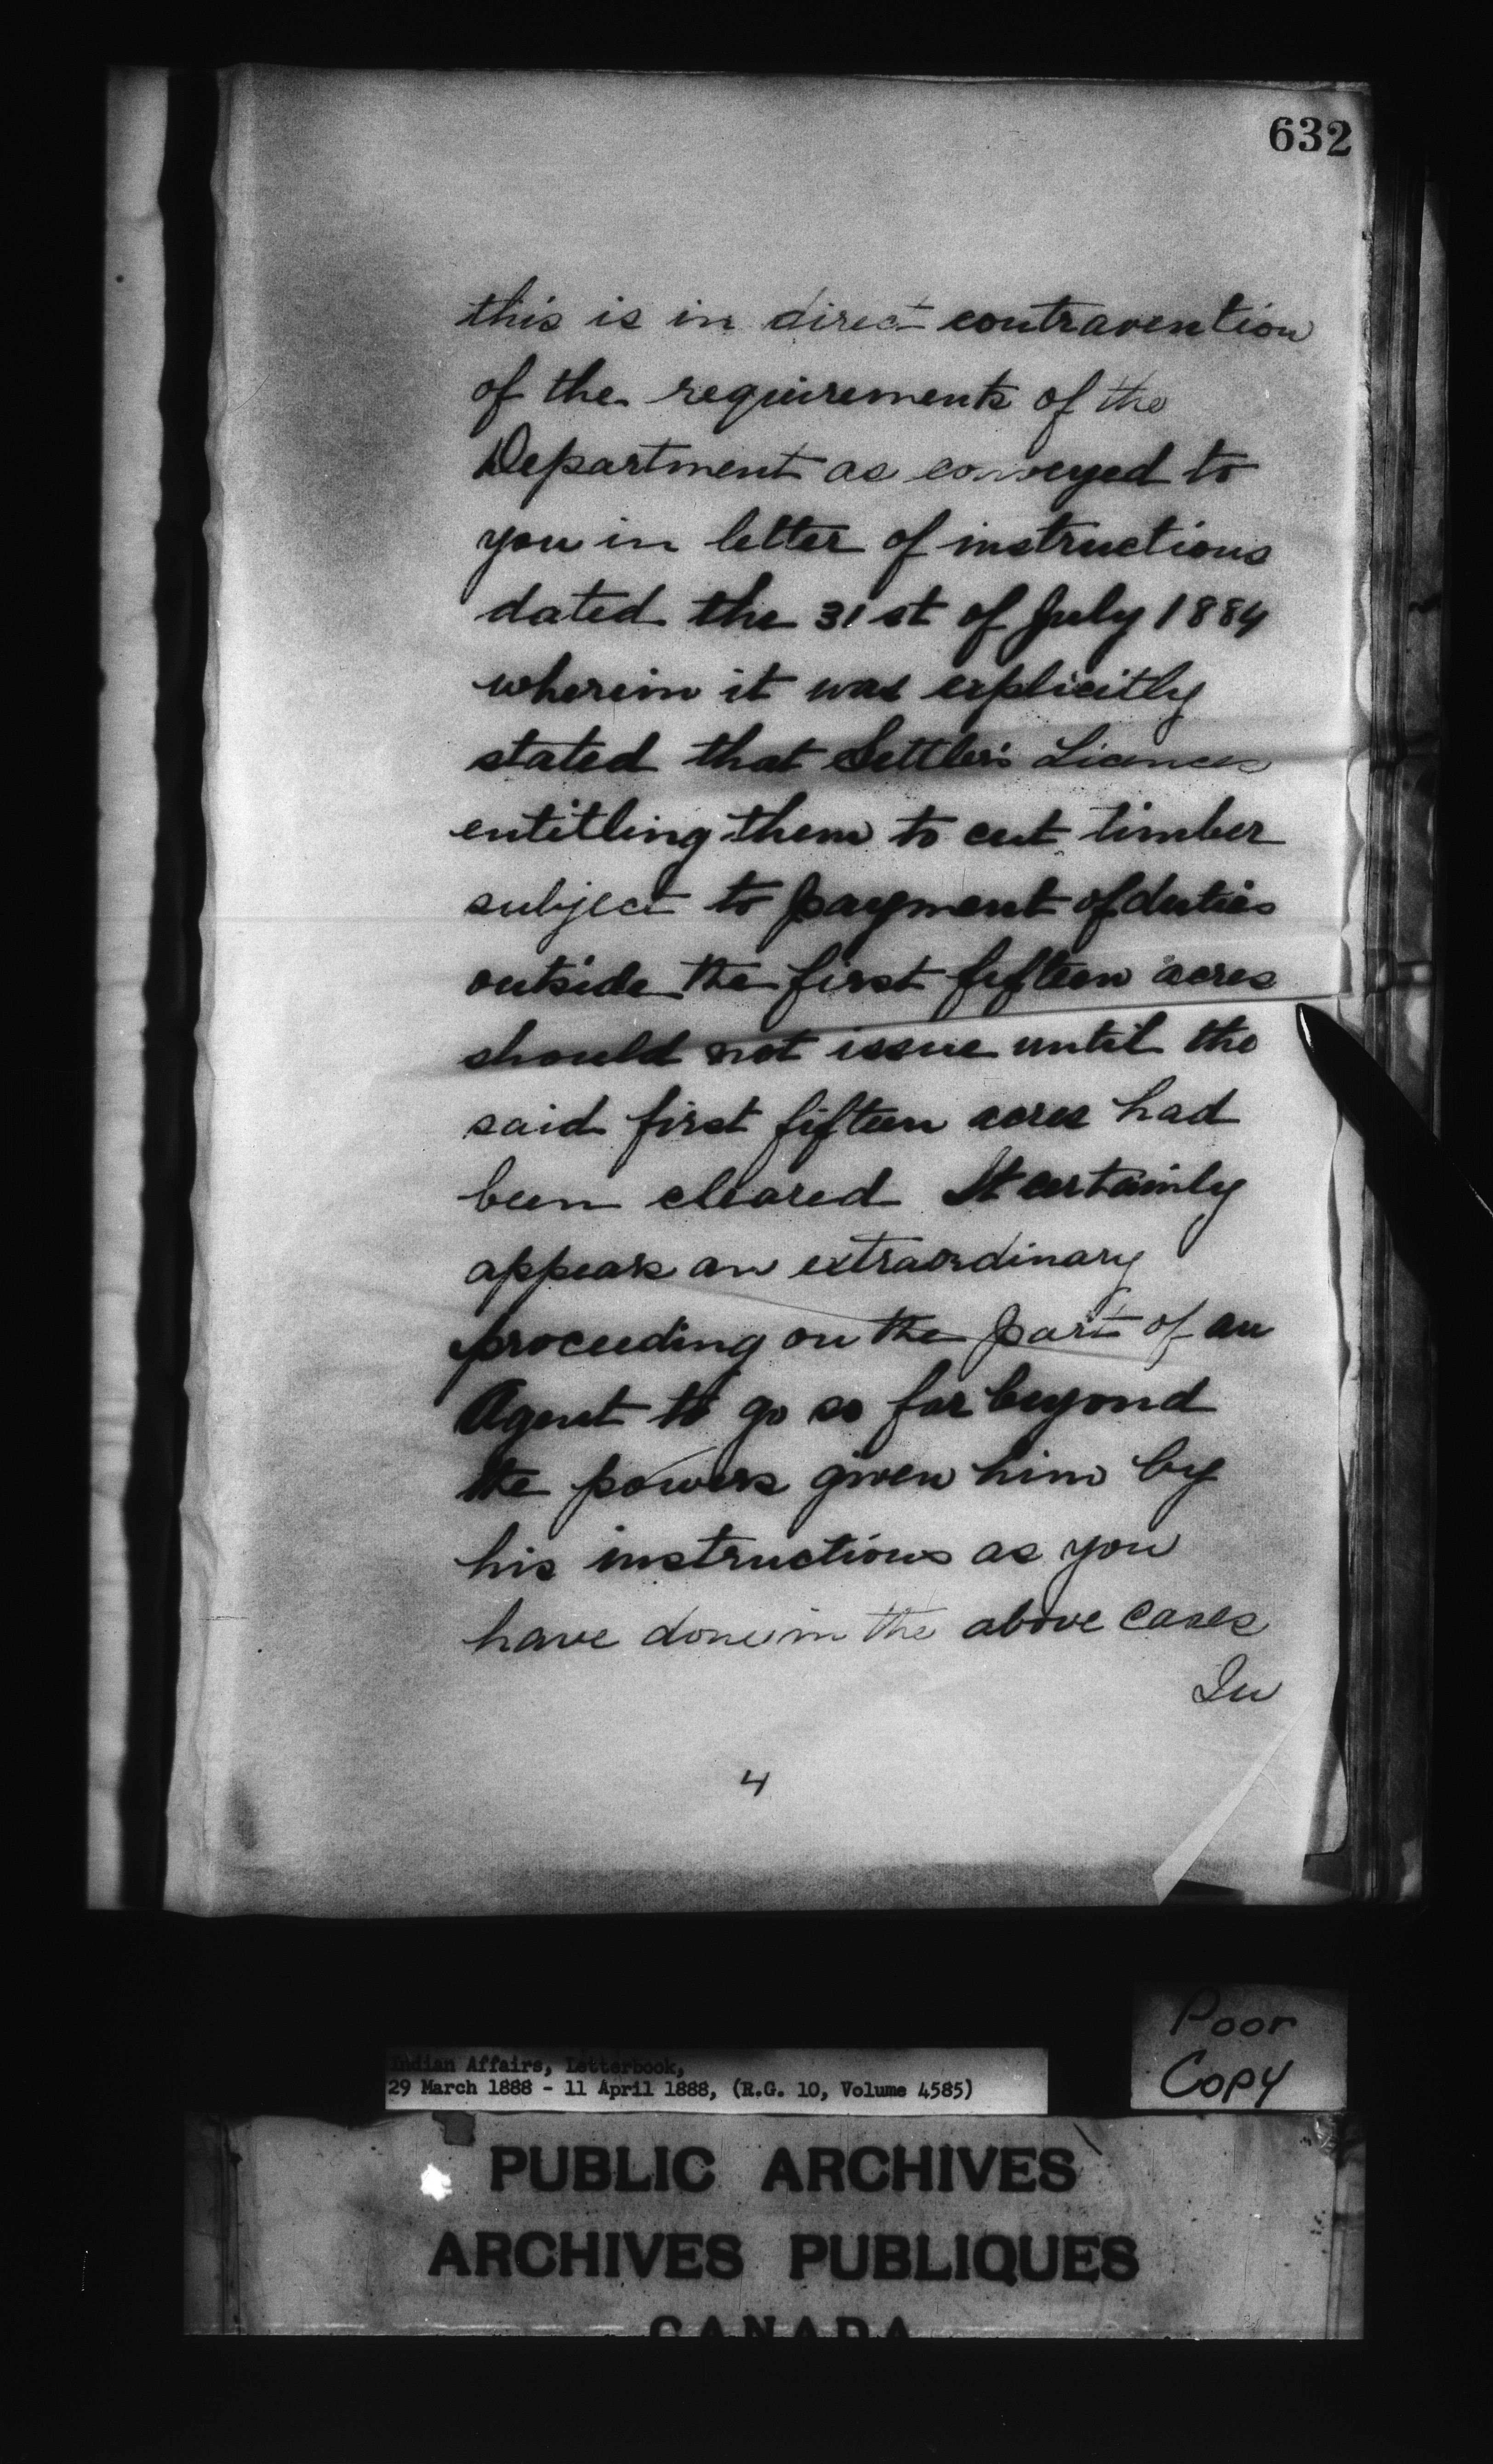 632
this is in direct contravention
of the requirements of the
Department as conveyed to
you in letter of instructions
dated the 31st of July 1884
wherein it was explicitly
stated that Settler's Licences
entitling them to cut timber
subject to payment of duties
outside the first fifteen acres
should not issue until the
said first fifteen acres had
been cleared It certainly
appears an extraordinary
proceeding on the part of an
Agent to go so far beyond
the powers given him by
his instructions as you
have done in the above cases
In
4
Poor
Copy
Indian Affairs, Letterbook,
29 March 1888 - 11 April 1888, (R.G. 10, Volume 4585)
PUBLIC ARCHIVES
ARCHIVES PUBLIQUES
CANADA